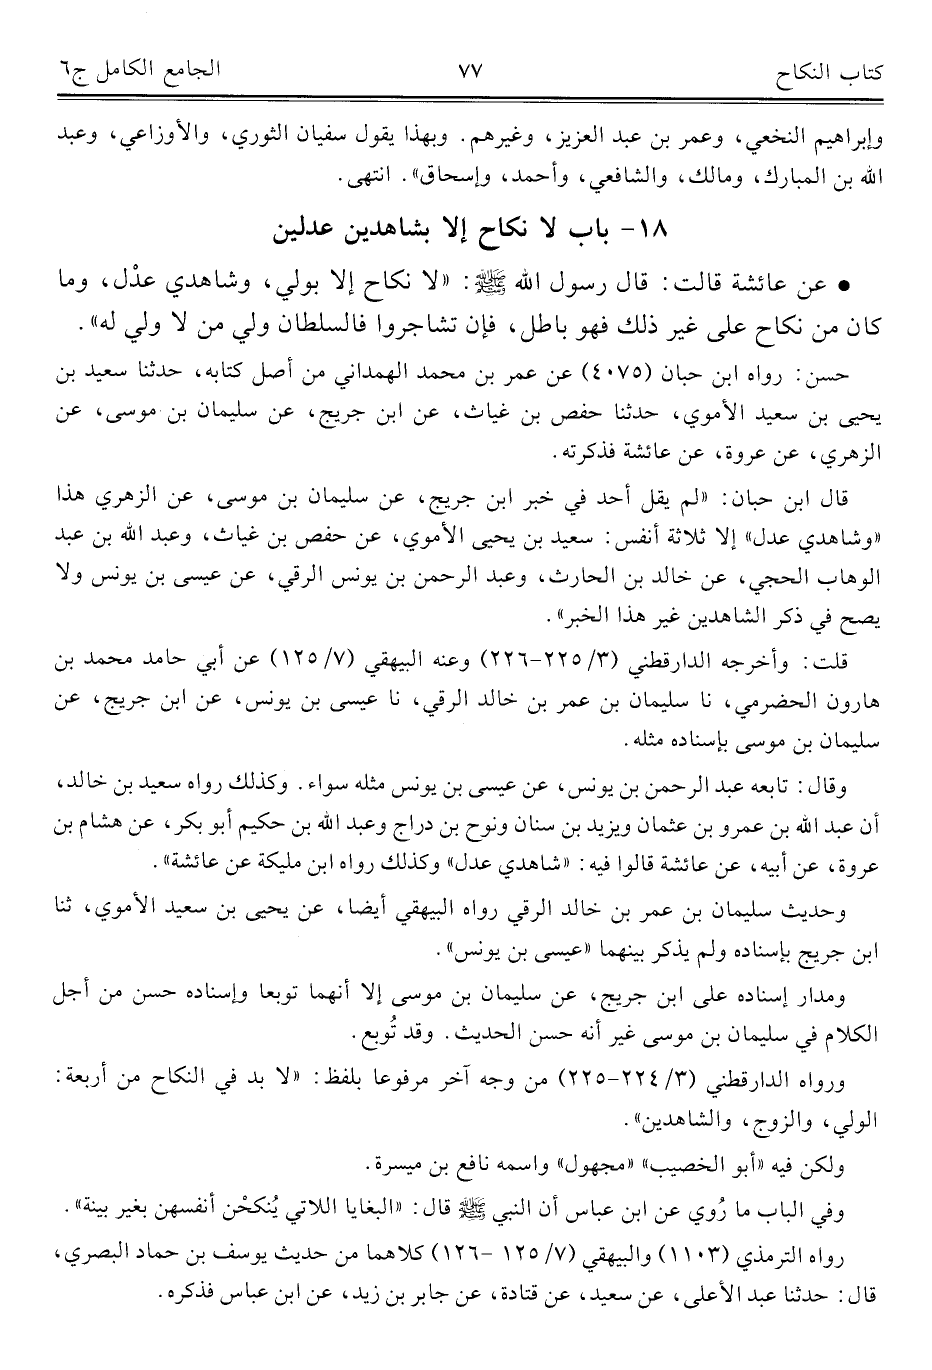 كتاب النكاح ٧٧ الجامع الكامل ج٦
وإبراهيم النخعي، وعمر بن عبد العزيز، وغيرهم. وبهذا يقول سفيان الثوري، والأوزاعي، وعبد
الله بن المبارك، ومالك، والشافعي، وأحمد، وإسحاق». انتهى.
١٨- باب لا نكاح إلا بشاهدين عدلين
● عن عائشة قالت: قال رسول الله ﷺ: «لا نكاح إلا بولي، وشاهدي عدْل، وما
كان من نكاح على غير ذلك فهو باطل، فإن تشاجروا فالسلطان ولي من لا ولي له».
حسن: رواه ابن حبان (٤٠٧٥) عن عمر بن محمد الهمداني من أصل كتابه، حدثنا سعيد بن
يحيى بن سعيد الأموي، حدثنا حفص بن غياث، عن ابن جريج، عن سليمان بن موسى، عن
الزهري، عن عروة، عن عائشة فذكرته.
قال ابن حبان: «لم يقل أحد في خبر ابن جريج، عن سليمان بن موسى، عن الزهري هذا
«وشاهدي عدل» إلا ثلاثة أنفس: سعيد بن يحيى الأموي، عن حفص بن غياث، وعبد الله بن عبد
الوهاب الحجي، عن خالد بن الحارث، وعبد الرحمن بن يونس الرقي، عن عيسى بن يونس ولا
يصح في ذكر الشاهدين غير هذا الخبر».
قلت: وأخرجه الدارقطني (٣/ ٢٢٥-٢٢٦) وعنه البيهقي (٧/ ١٢٥) عن أبي حامد محمد بن
هارون الحضرمي، نا سليمان بن عمر بن خالد الرقي، نا عيسى بن يونس، عن ابن جريج، عن
سليمان بن موسى بإسناده مثله.
وقال: تابعه عبد الرحمن بن يونس، عن عيسى بن يونس مثله سواء. وكذلك رواه سعيد بن خالد،
أن عبد الله بن عمرو بن عثمان ويزيد بن سنان ونوح بن دراج وعبد الله بن حكيم أبو بكر، عن هشام بن
عروة، عن أبيه، عن عائشة قالوا فيه: «شاهدي عدل» وكذلك رواه ابن مليكة عن عائشة».
وحديث سليمان بن عمر بن خالد الرقي رواه البيهقي أيضا، عن يحيى بن سعيد الأموي، ثنا
ابن جريج بإسناده ولم يذكر بينهما «عيسى بن يونس».
ومدار إسناده على ابن جريج، عن سليمان بن موسى إلا أنهما توبعا وإسناده حسن من أجل
الكلام في سليمان بن موسى غير أنه حسن الحديث. وقد تُوبع.
ورواه الدارقطني (٣/ ٢٢٤-٢٢٥) من وجه آخر مرفوعا بلفظ: «لا بد في النكاح من أربعة:
الولي، والزوج، والشاهدين».
ولكن فيه «أبو الخصيب» «مجهول» واسمه نافع بن ميسرة.
وفي الباب ما رُوي عن ابن عباس أن النبي ﷺ قال: «البغايا اللاتي يُنكحْن أنفسهن بغير بينة».
رواه الترمذي (١١٠٣) والبيهقي (٧/ ١٢٥ -١٢٦) كلاهما من حديث يوسف بن حماد البصري،
قال: حدثنا عبد الأعلى، عن سعيد، عن قتادة، عن جابر بن زيد، عن ابن عباس فذكره.